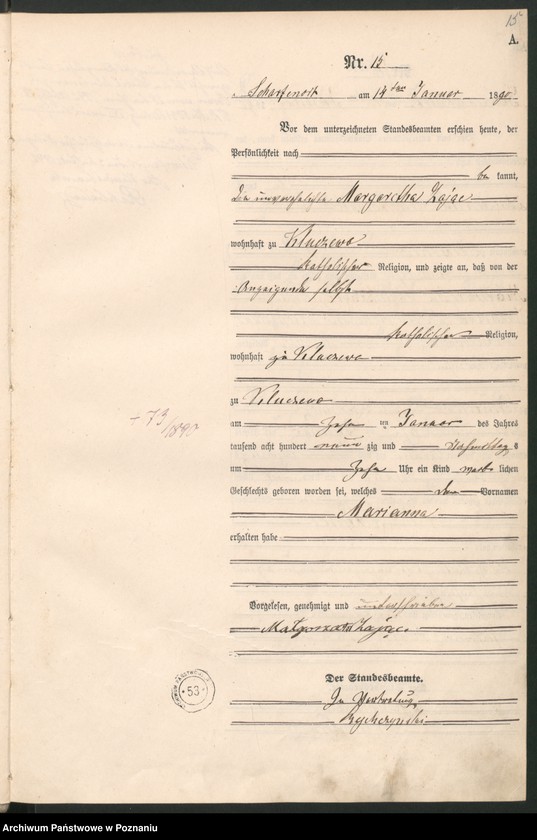 15
A.
Nr. 15
Scharfenort am 14ten Januar 1890
Vor dem unterzeichneten Standesbeamten erschien heute, der
Persönlichkeit nach
be kannt,
die unverehelichte Margaretha Zając
wohnhaft zu Kluczewo
katholischer Religion, und zeigte an, daß von der
Anzeigende selbst
katholischer Religion,
wohnhaft zu Kluczewo
zu Kluczewo
am zehn ten Januar des Jahres
tausend acht hundert neun zig und Nachmittags
um zehn Uhr ein Kind weib lichen
Geschlechts geboren worden sei, welches den Vornamen
Marianna
erhalten habe
+ 73/1890
Vorgelesen, genehmigt und unterschrieben
Małgorzata Zając
Der Standesbeamte.
In Vertretung
53
Archiwum Państwowe w Poznaniu